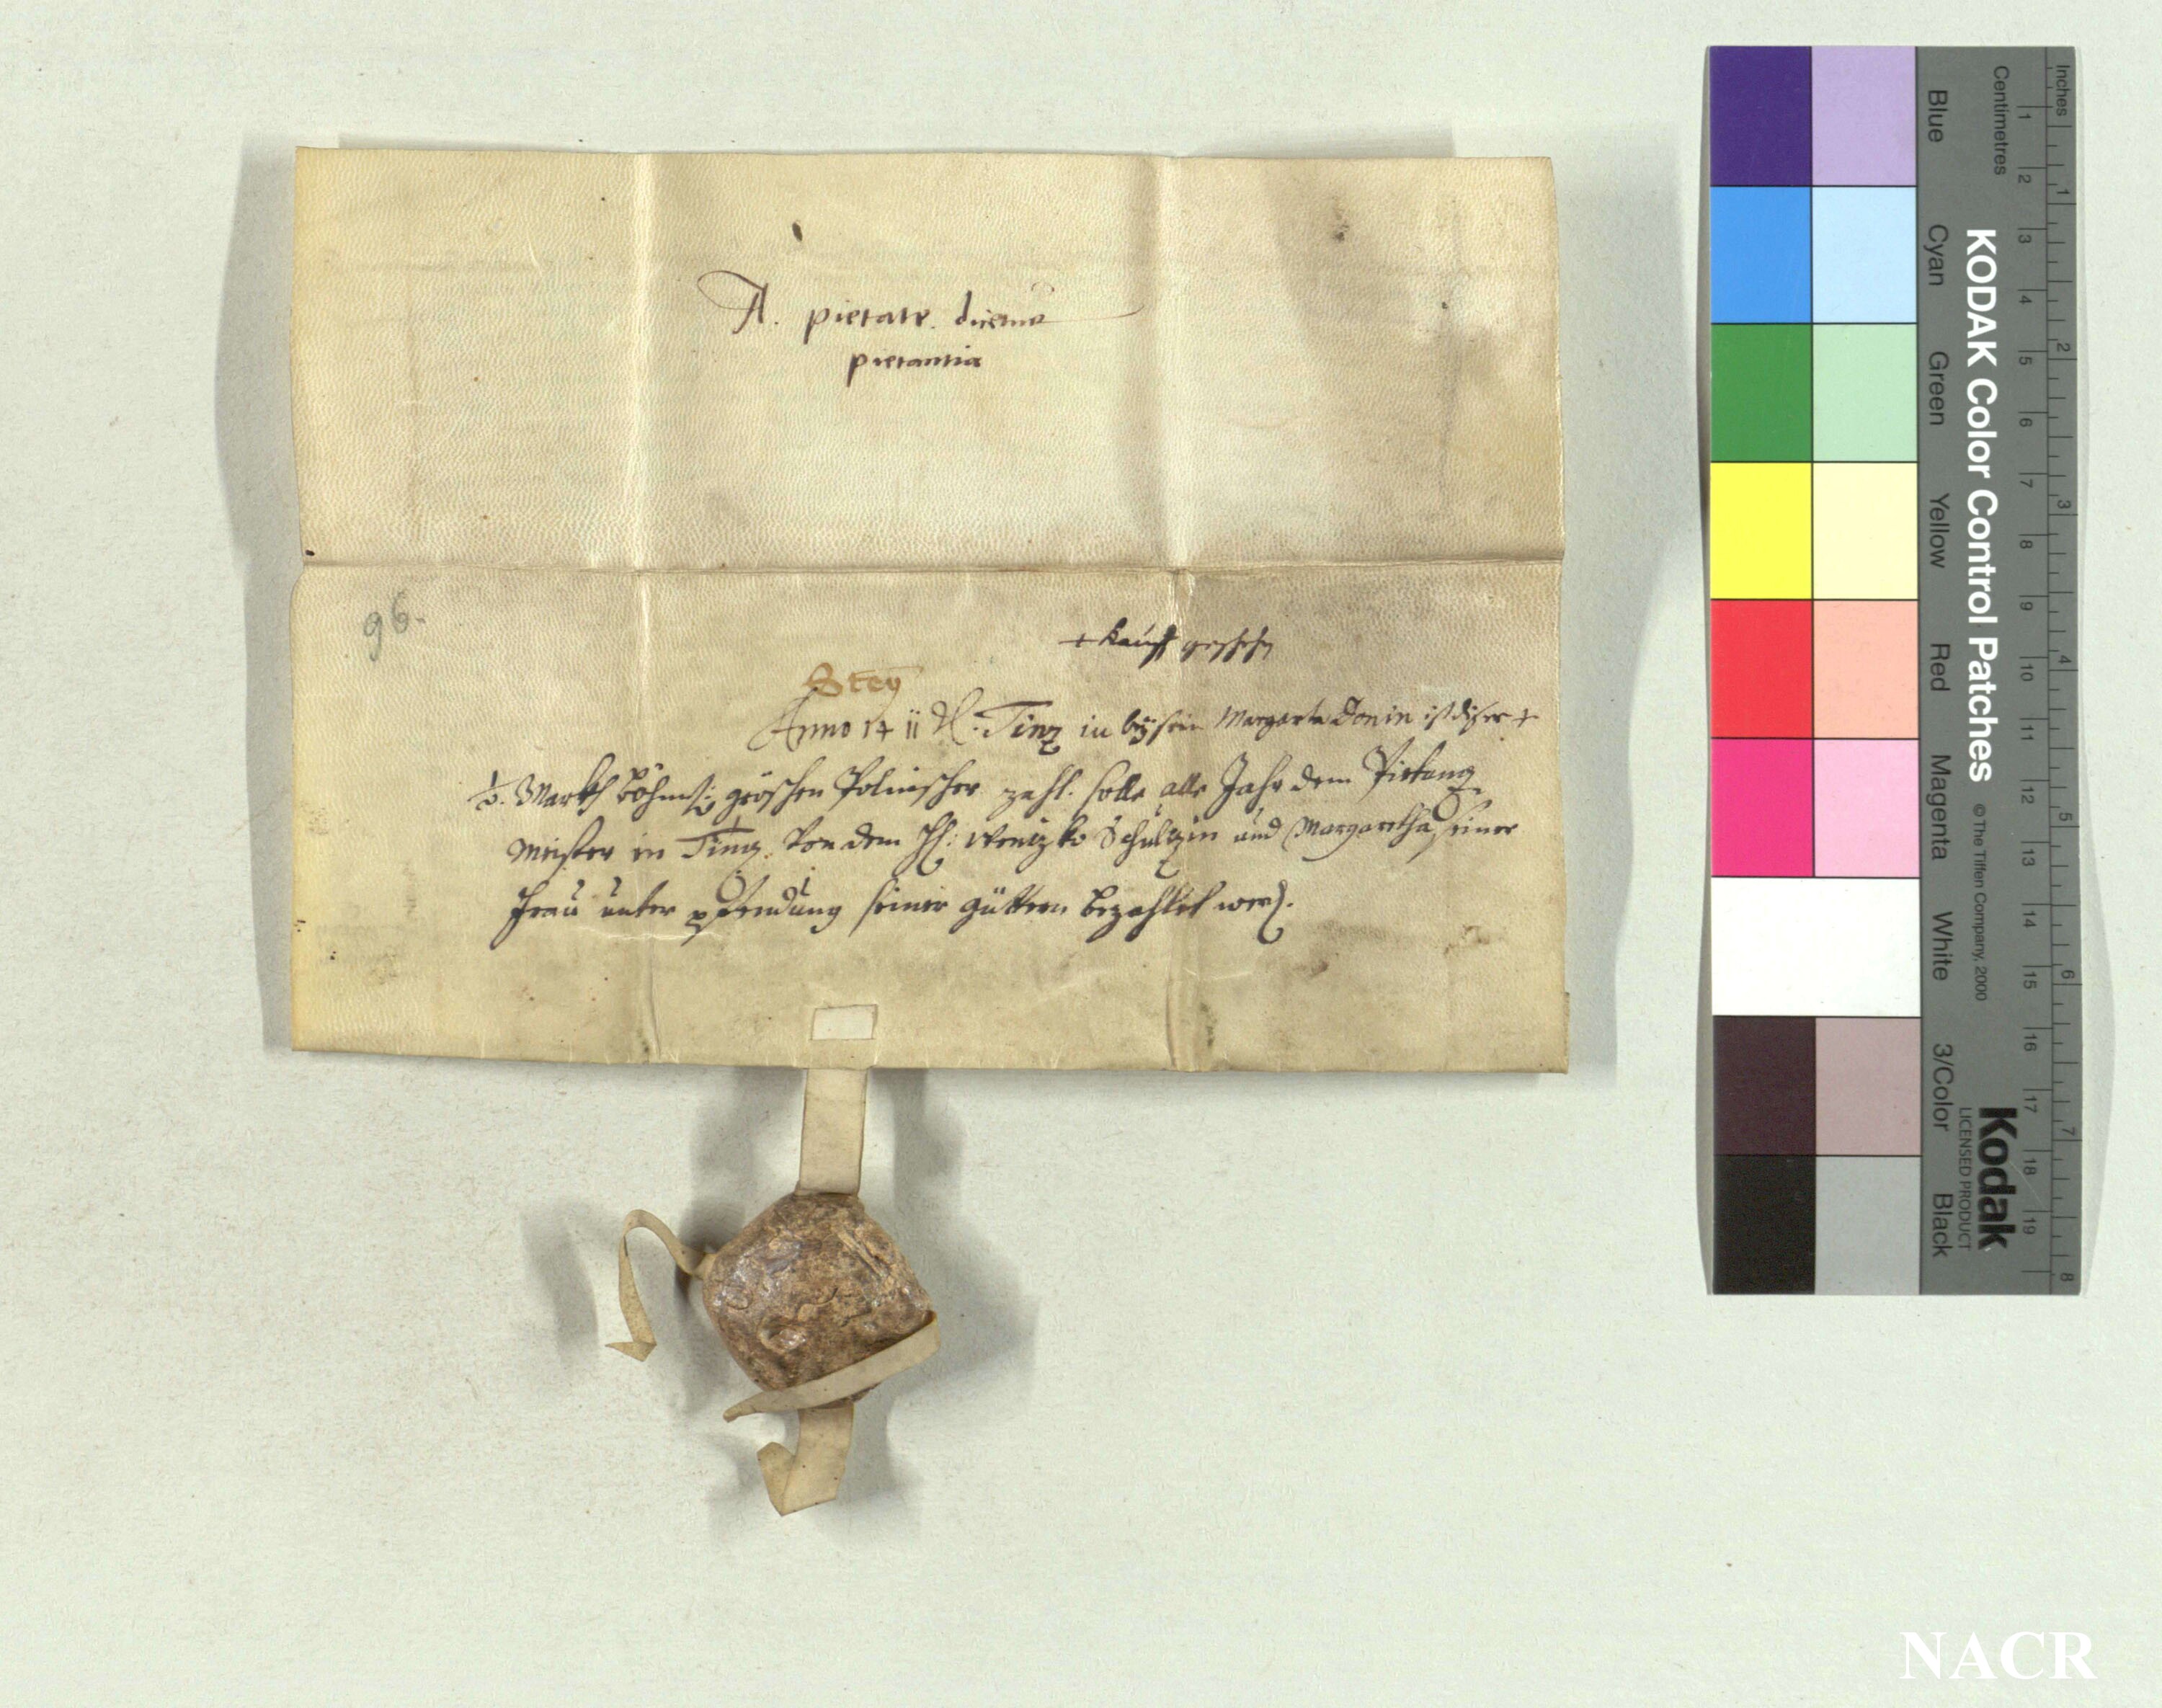 A. pietate. dicemus
pietantia
96.
+ kauff geschehen
Stey
Anno 1411 Tinz in beysein Margareta Donin ist diser +
½. Markh Böhmische gröschen Polnischer zahl. solle alle Jahr dem Pietanz
Meister in Tinz. Von dem H: Wenzko Schulzin und Margaretha seiner
Frau unter pfendung seiner güttern bezahlet werd.
Inches
Centimetres
KODAK Color Control Patches © The Tiffen Company, 2000
Kodak
LICENSED PRODUCT
Blue Cyan Green Yellow Red Magenta White 3/Color Black
1 2 3 4 5 6 7 8 9 10 11 12 13 14 15 16 17 18 19
1 2 3 4 5 6 7 8
NACR